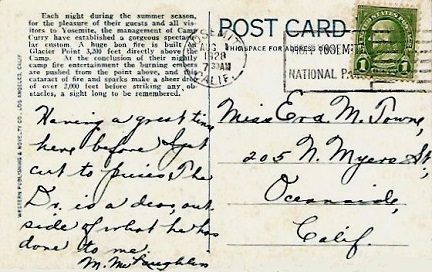 Each night during the summer season,
for the pleasure of their guests and all visitors
to Yosemite, the management of Camp
Curry have established a gorgeous spectacular
custom. A huge bon fire is built on
Glacier Point 3,200 feet directly above the
Camp. At the conclusion of their nightly
camp fire entertainments the burning embers
are pushed from the point above, and the
cataract of fire and sparks make a sheer drop
of over 2,000 feet before striking any obstacles,
a sight long to be remembered.
WESTERN PUBLISHING & NOVELTY CO., LOS ANGELES, CALIF.
Having a great time
here before I get
cut to pieces. The
Dr. is a dear, outside
of what he has
done to me.
M. McLaughlin
POST CARD
THIS SPACE FOR ADDRESS
YOSEMITE
AUG
1928
7 30AM
CALIF.
VISIT YOSEMITE
NATIONAL PARK
1 1
Miss Eva M. Towne,
205 N. Myers St,
Oceanside,
Calif.